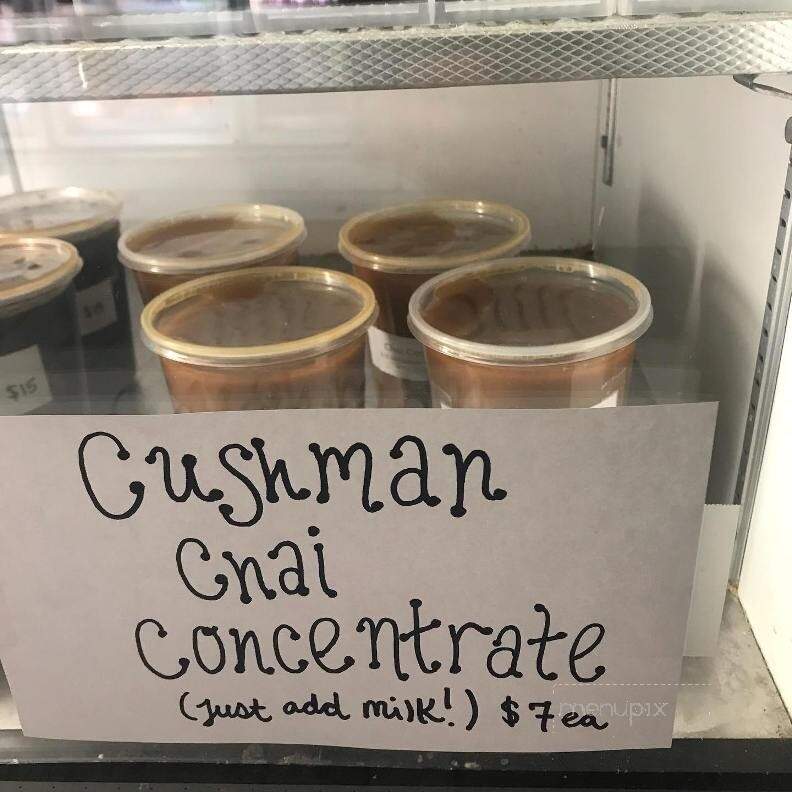 $15
Cushman
Chai
Concentrate
(just add milk!) $7 ea
menupix